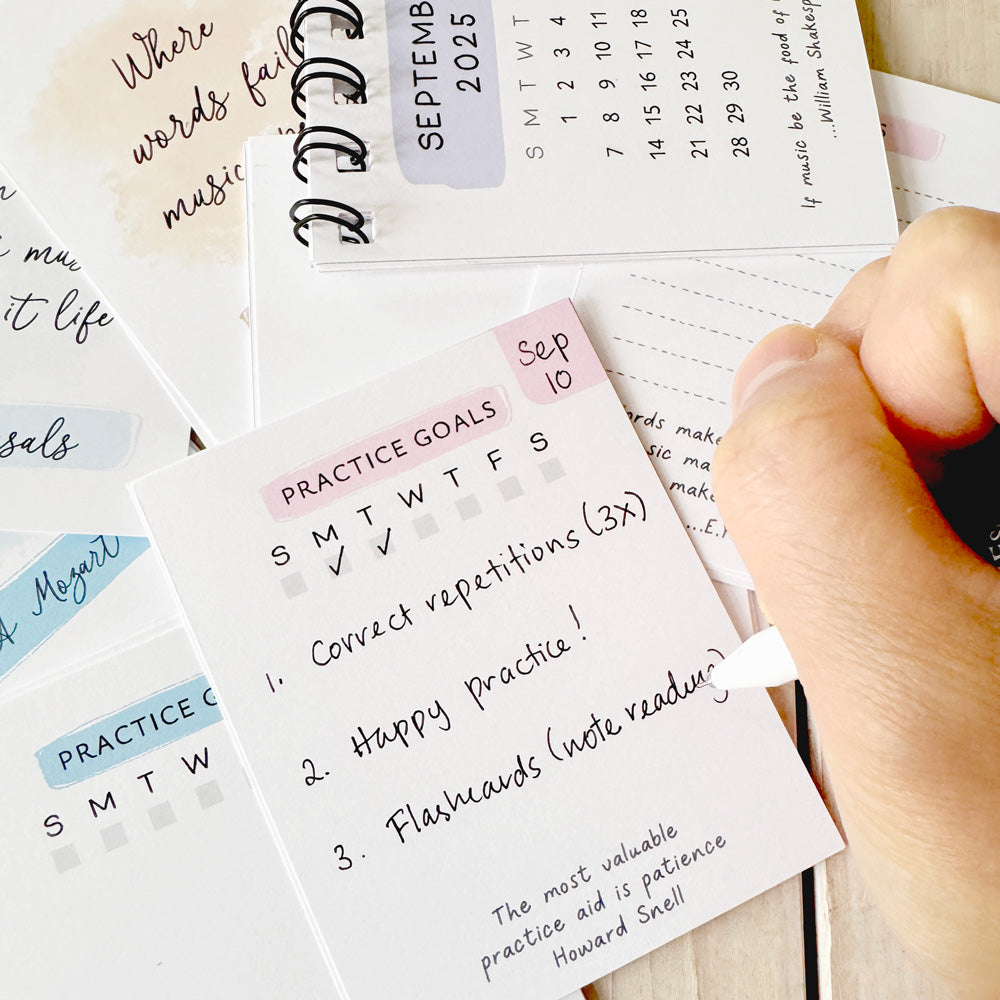 Where
words fail
music
SEPTEMB
2025
S M T W T
1 2 3 4
7 8 9 10 11
14 15 16 17 18
21 22 23 24 25
28 29 30
If music be the food of
...William Shakesp
it life
Mozart
PRACTICE G
S M T W
Sep
10
PRACTICE GOALS
S M T W T F S
✓ ✓
1. Correct repetitions (3x)
2. Happy practice!
3. Flashcards (note reading)
The most valuable
practice aid is patience
Howard Snell
make
sic ma
make